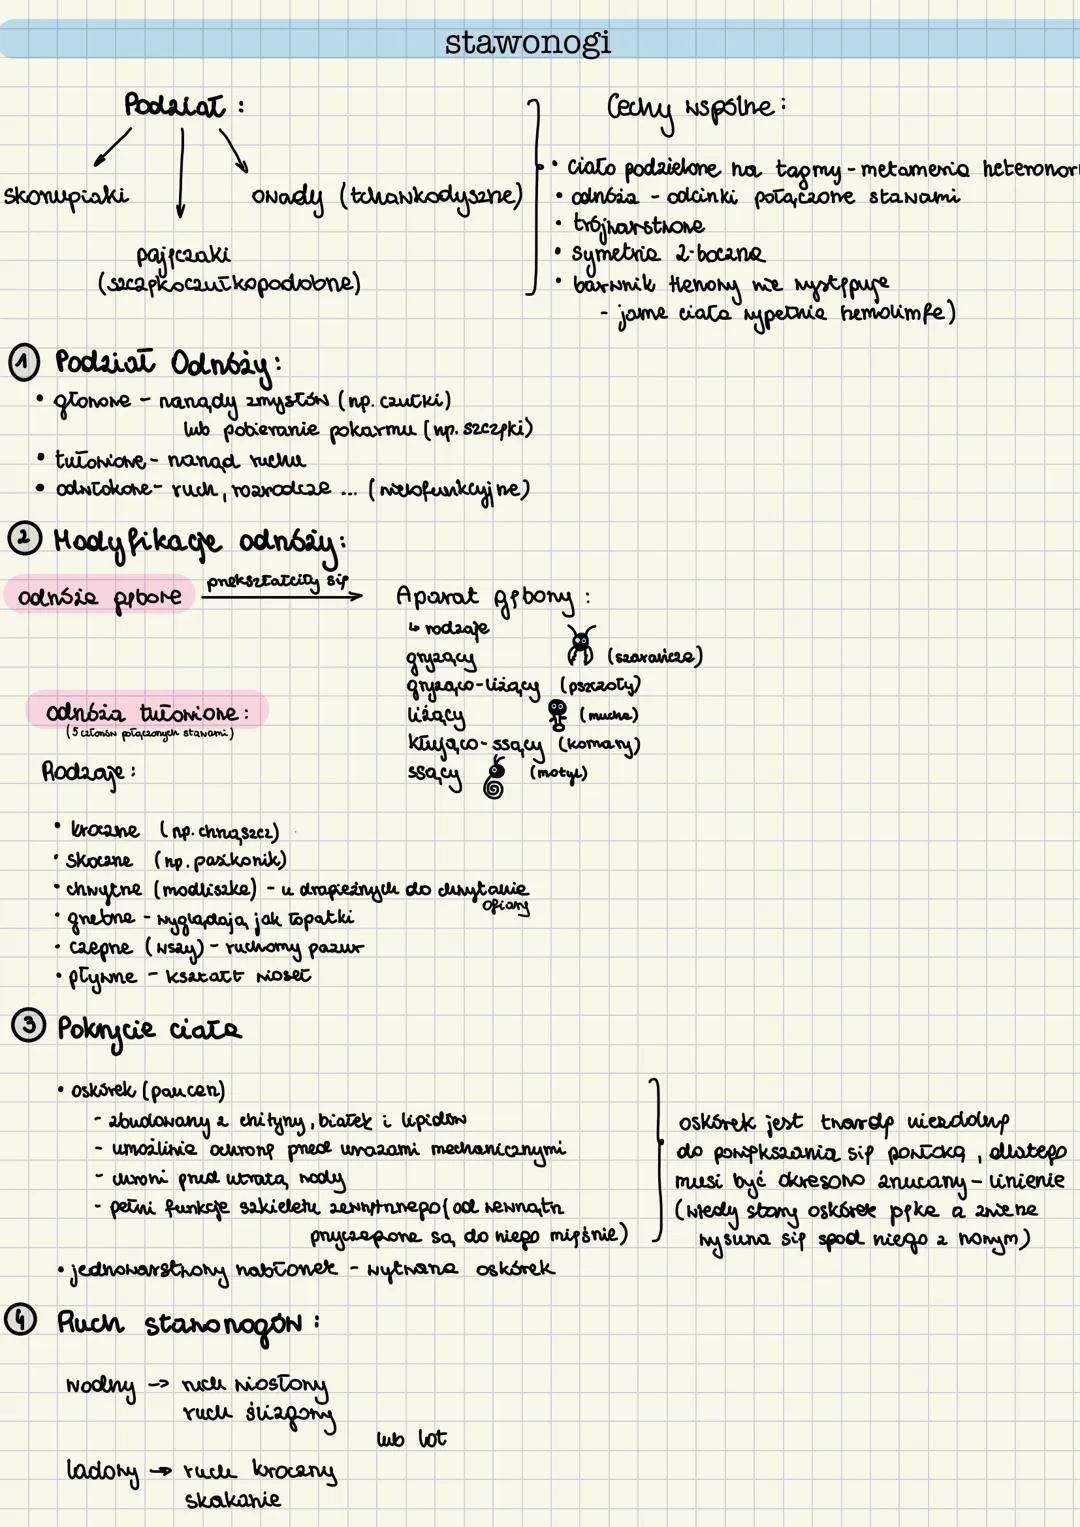 stawonogi
Podział :
skorupiaki
owady (tchawkodyszne)
pajęczaki
(szczękoczułkopodobne)
Cechy wspólne :
• ciało podzielone na tagmy - metameria heteronor
• odnóża - odcinki połączone stawami
• trójwarstwowe
• symetria 2-boczna
• barwnik
nie występuje
- jamę ciała wypełnia hemolimfa)
1 Podział Odnóży :
• głowowe - narządy zmysłów (np. czułki)
lub pobieranie pokarmu (np. szczęki)
• tułowiowe - narząd ruchu
• odwłokowe - ruch, rozrodcze ... (wielofunkcyjne)
2 Modyfikacje odnóży :
odnóża gębowe
przekształciły się
Aparat gębowy :
↳ rodzaje
gryzący (szarańcza)
gryząco-liżący (pszczoły)
liżący (mucha)
kłująco-ssący (komary)
ssący (motyl)
odnóża tułowiowe :
(5 członów połączonych stawami)
Rodzaje :
• kroczne (np. chrząszcz)
• skoczne (np. pasikonik)
• chwytne (modliszka) - u drapieżnych do chwytania
ofiary
• grzebne - wyglądają jak łopatki
• czepne (wszy) - ruchomy pazur
• pływne - kształt wioseł
3 Pokrycie ciała
• oskórek (pancerz)
- zbudowany z chityny, białek i lipidów
- umożliwia ochronę przed urazami mechanicznymi
- chroni przed utratą wody
- pełni funkcję szkieletu zewnętrznego (od wewnątrz
przyczepione są do niego mięśnie)
• jednowarstwowy nabłonek - wytwarza oskórek
oskórek jest twardą niezdolną
do powiększania się powłoką, dlatego
musi być okresowo zrzucany - linienie
(wtedy stary oskórek pęka a zwierzę
wysuwa się spod niego z nowym)
4 Ruch stawonogów :
wodny -> ruch wiosłowy
ruch ślizgowy
lub lot
lądowy -> ruch kroczny
skakanie